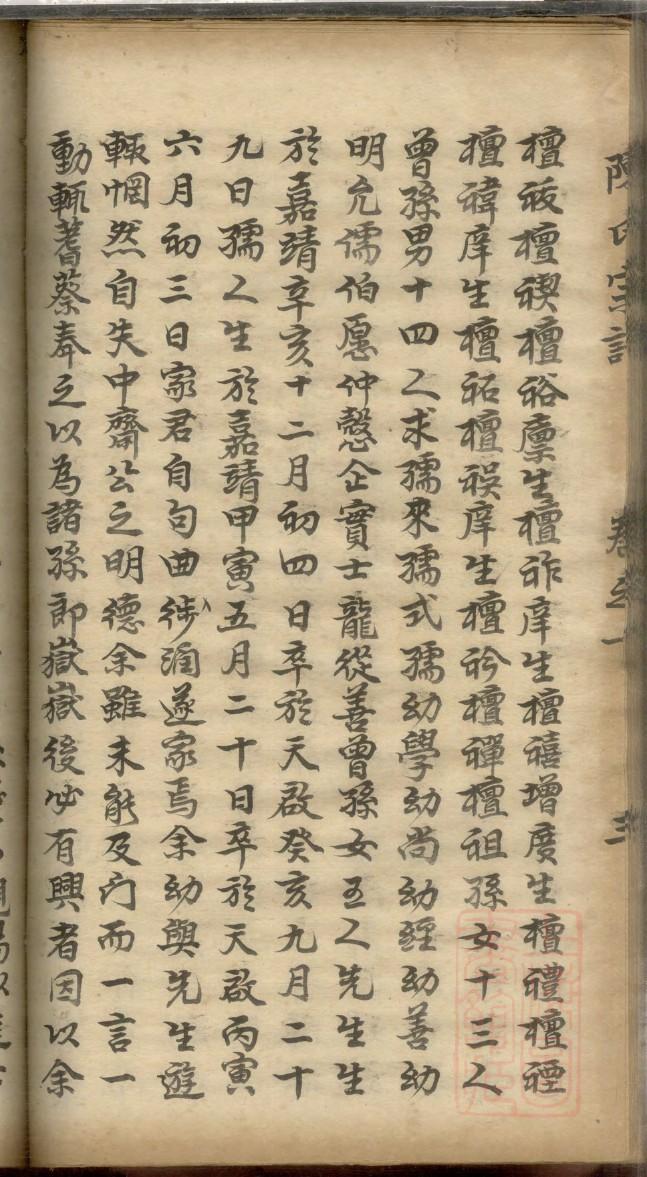 檀祓檀禊檀裕廪生檀祚庠生檀禧增廣生檀禮檀禋
檀禕庠生檀祏檀祦庠生檀衿檀禪檀祖孫女十三人
曾孫男十四人求孺來孺式孺幼學幼尚幼經幼善幼
明允儒伯愿仲慤企實士龍從善曾孫女五人先生生
於嘉靖辛亥十二月初四日卒於天啟癸亥九月二十
九日孺人生於嘉靖甲寅五月二十日卒於天啟丙寅
六月初三日家君自句曲徙涸遂家焉余幼與先生遊
輒惘然自失中齋公之明德余雖未能及门而一言一
動輒蓍蔡奉之以為諸孫即嶽嶽後必有興者因以余